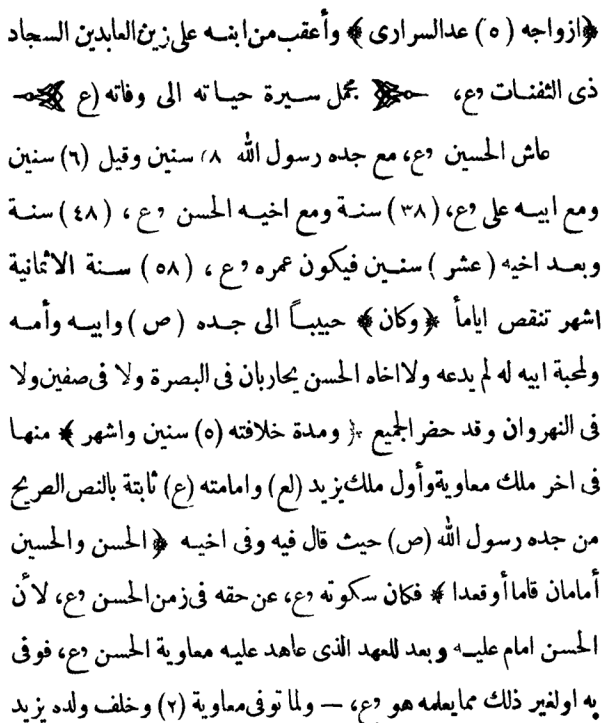 ﴿ازواجه (٥) عدا السرارى﴾ وأعقب من ابنه على زين العابدين السجاد
ذى الثفنات «ع» مجمل سيرة حياته الى وفاته (ع)
عاش الحسين «ع» مع جده رسول الله ٨ سنين وقيل (٦) سنين
ومع ابيه على «ع» (٣٨) سنة ومع اخيه الحسن «ع» (٤٨) سنة
وبعد اخيه (عشر) سنين فيكون عمره «ع» (٥٨) سنة الا ثمانية
اشهر تنقص اياماً ﴿وكان﴾ حبيباً الى جده (ص) وابيه وأمه
ولمحبة ابيه له لم يدعه ولا اخاه الحسن يحاربان فى البصرة ولا فى صفين ولا
فى النهروان وقد حضر الجميع ﴿ومدة خلافته (٥) سنين واشهر﴾ منها
فى اخر ملك معاوية وأول ملك يزيد (لع) وامامته (ع) ثابتة بالنص الصريح
من جده رسول الله (ص) حيث قال فيه وفى اخيه ﴿الحسن والحسين
أمامان قاما أو قعدا﴾ فكان سكوته «ع» عن حقه فى زمن الحسن «ع» لأن
الحسن امام عليه وبعد للعهد الذى عاهد عليه معاوية الحسن «ع» فوفى
به او لغير ذلك مما يعلمه هو «ع» — ولما توفى معاوية (٢) وخلف ولده يزيد